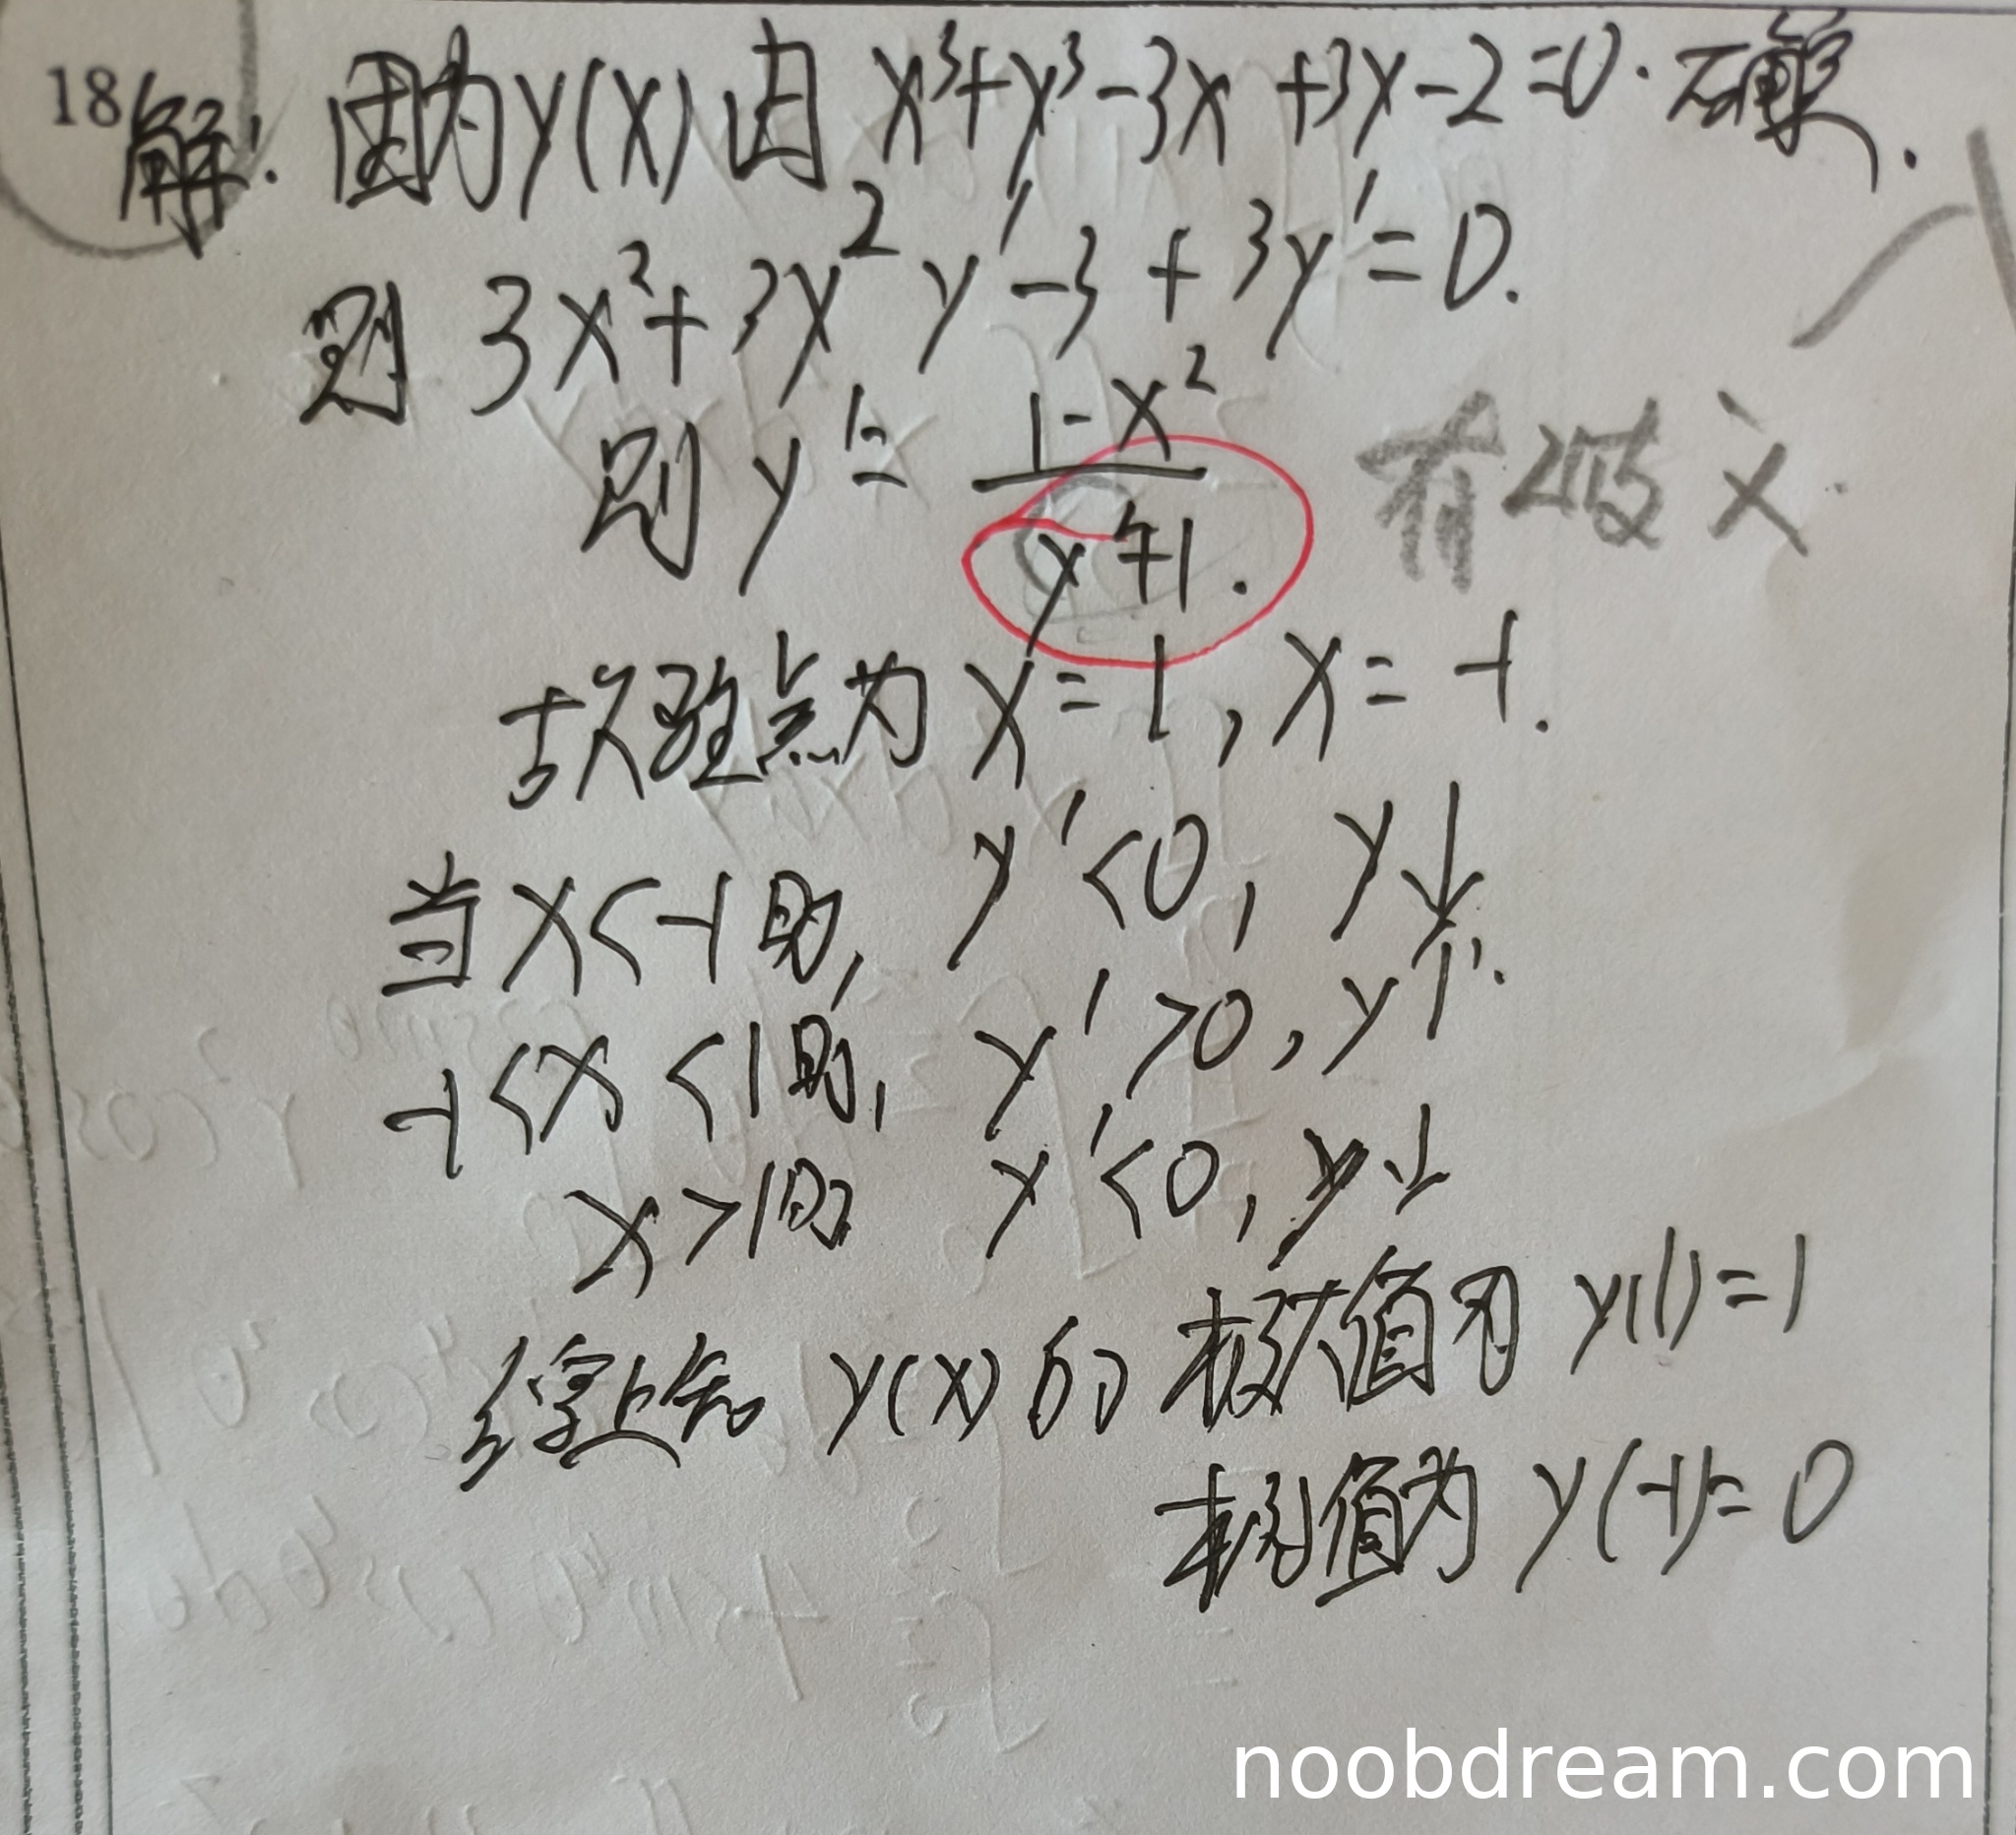 18
解: 因为y(x)由 x³+y³-3x+3y-2=0.确定.
则 3x²+3y²y'-3+3y'=0.
则 y'= (1-x²)/(y²+1).
有歧义.
故驻点为 x=1, x=-1.
当x<-1时, y'<0, y↓
-1<x<1时, y'>0, y↑.
x>1时 y'<0, y↓
综上知 y(x)的极大值为 y(1)=1
极小值为 y(-1)=0
noobdream.com